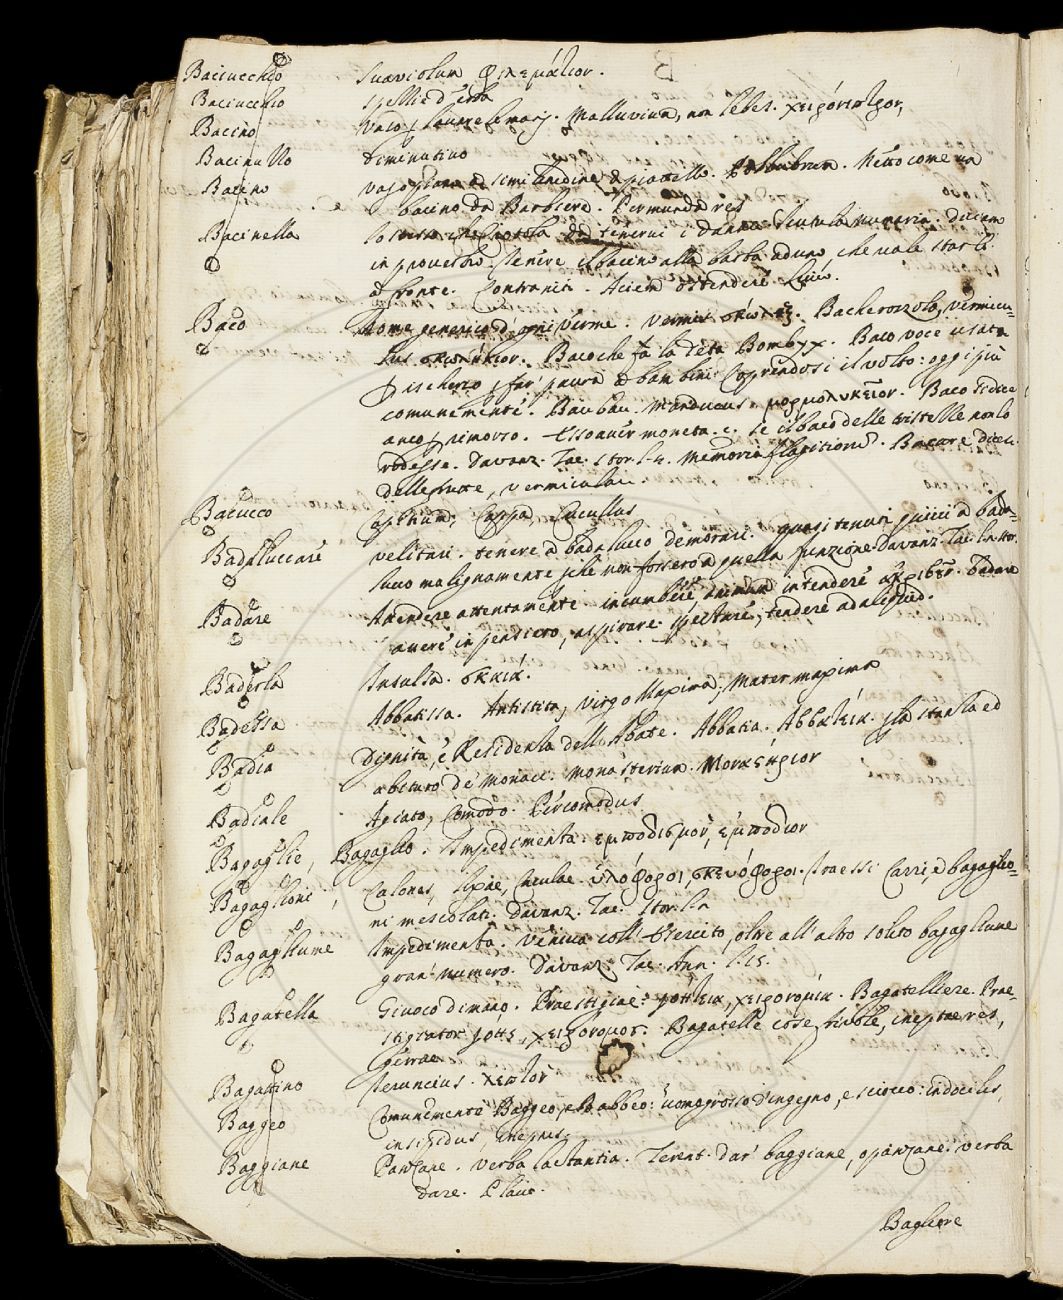 B
Baciucchio Suaviolum φιλημάτιον.
Baciucchio Spellie d'erba
Bacino Vaso p lavare le mani. Malluvium, non lebes. χειρόνιπτρον,
Bacinullo diminutivo
Bacino vaso piano di similitudine di piattello. Netto come un
bacino da Barbiere. Permunda res
Bacinella tenervi i danari
in proverbio. tenere il bacino alla barba ad uno, che vale star li
a fronte. Aciem ostendere. Liuio.
Baco Nome generico d. ogni verme. Vermis σκώληξ. Bacherozzolo, vermicu-
lus σκωλήκιον. Baco che fa la seta Bombyx. Baco voce usata
p ischerzo p far' paura a bambini coprendosi il volto: oggi più
comunemente. Baubau. Manducus μορμολυκεῖον. Baco si dice
anco p rimorso. Esso aver moneta. c. se il baco delle tristelle non lo
rodesse. Davanz. Tac. stor. l. 4. Memoria flagitiorũ. Bacare dicesi
delle frutte, vermiculari.
Bacucco Capitium, Cappa, Cucullus
Badaluccare velitari. tenere a badalucco demorari. quasi tenuti quivi a bada-
lucco malignamente p che non fossero a quella funzione. Davanz. Tac. la stor.
Badare Attendere attentamente incumbere animum intendere ἀκριβῶς. badare
avere in pensiero, aspirare spectare, tendere ad aliquid.
Baderla Insulsa. σκαιά.
Badessa Abbatissa. Antistita, virgo Maxima, Mater maxima
Badia Dignità, e Residenza dell'Abate. Abbatia. Ἀββατεία. p la stanza ed
abituro de' monaci: monasterium. Μοναστήριον
Badiale Agiato, comodo. Percomodus
Bagaglie, Bagaglio. Impedimenta. ἐμποδισμὸν, ἐμπόδιον
Bagaglioni, Calones, lixae, Caculae. ὑλόφοροι, σκευόφοροι. Traessi Carri, e bagaglio-
ni mescolati. Davanz. Tac. Stor. l.
Bagagliume Impedimenta. Veniva coll' Esercito, oltre all' altro solito bagagliume
gran' numero. Davanz. Tac. Ann. l. 15.
Bagatella Giuoco di mano. Praestigiae: γοητεία, χειρονομία. Bagatelliere. Prae-
stigiator γόης, χειρονόμος. Bagatelle cose frivole, ineptae res,
Gerrae
Bagattino Teruncius. λεπτόν
Baggeo Comunemente Baggeo, e Babbeo: uomo grosso d'ingegno, e sciocco: indocilis,
insipidus, ineptus
Baggiane Panzane. Verba lactantia. Terent. dar' baggiane, o panzane: verba
dare. Plaut.
Bagliore